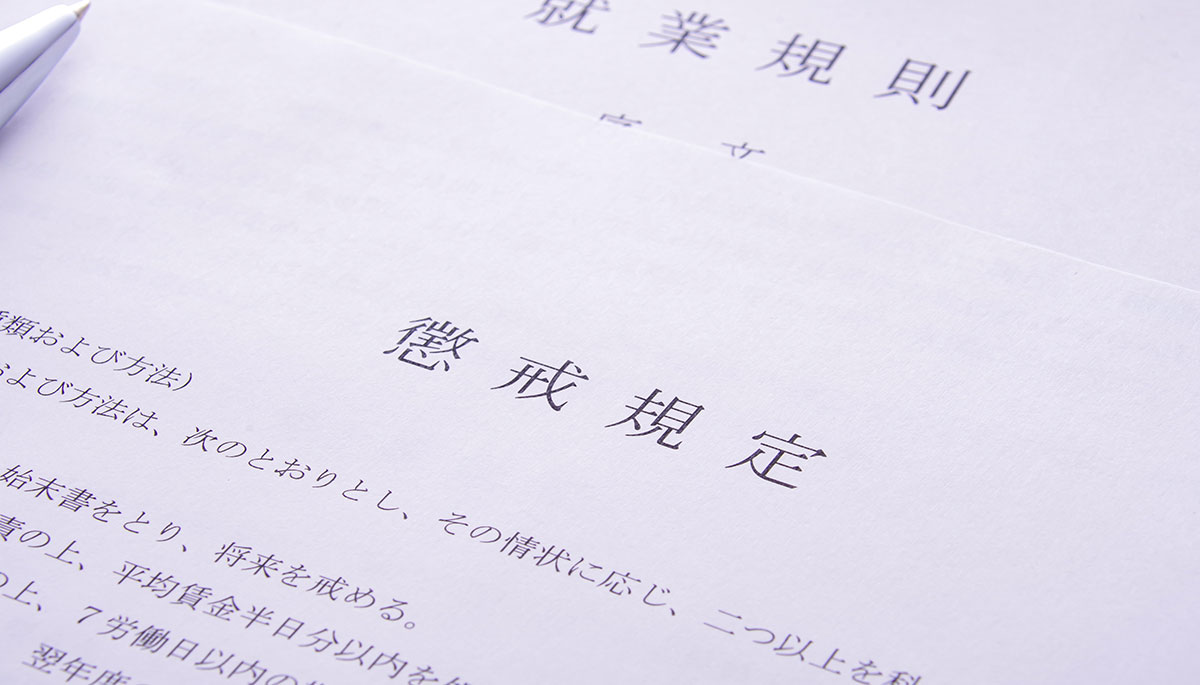 就業規則
文
懲戒規定
類および方法)
および方法は、次のとおりとし、その情状に応じ、二つ以上を科
始末書をとり、将来を戒める。
責の上、平均賃金半日分以内を
の上、7労働日以内の
翌年度